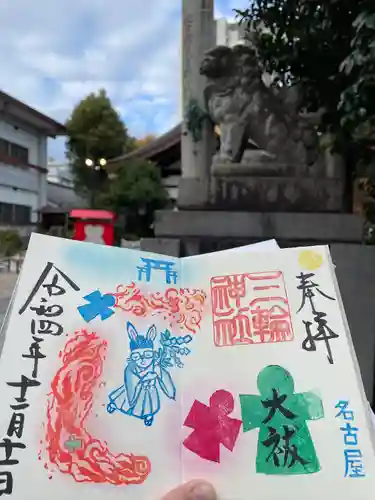 奉拝
三輪
神社
名古屋
大祓
令和四年十二月十四日